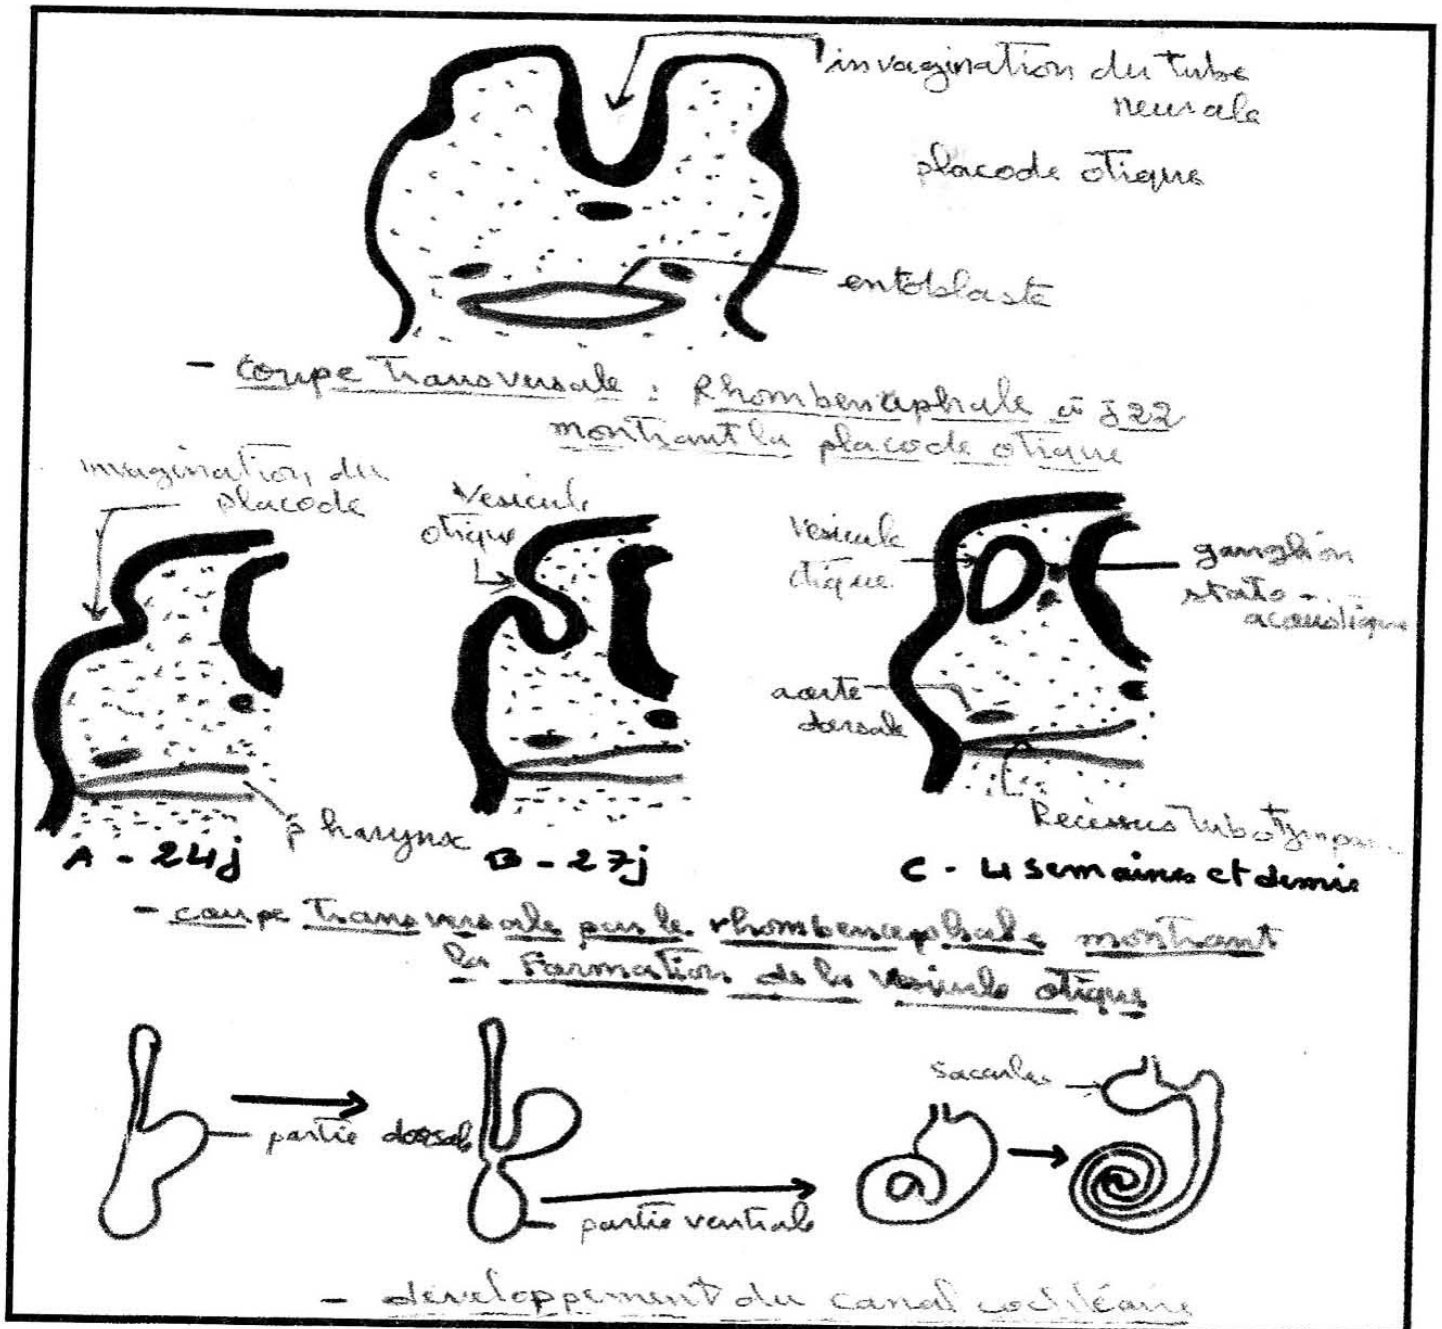 invagination du tube
neurale
placode otique
entoblaste
- Coupe Transversale : Rhombencéphale à J22
montrant la placode otique
invagination du
placode
Vesicule
otique
Vesicule
otique
ganglion
stato-
acoustique
aorte
dorsale
pharynx
Récessus tubotympan...
A - 24j
B - 27j
C - 4 semaines et demie
- coupe Transversale par le rhombencephale montrant
la Formation de la vesicule otique
saccule
partie dorsale
partie ventrale
- développement du canal cochléaire